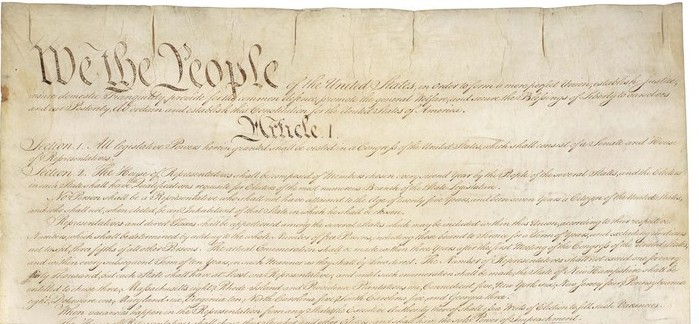 We the People of the United States, in Order to form a more perfect Union, establish Justice,
insure domestic Tranquility, provide for the common defence, promote the general Welfare, and secure the Blessings of Liberty to ourselves
and our Posterity, do ordain and establish this Constitution for the United States of America.
Article. I.
Section. 1. All legislative Powers herein granted shall be vested in a Congress of the United States, which shall consist of a Senate and House
of Representatives.
Section. 2. The House of Representatives shall be composed of Members chosen every second Year by the People of the several States, and the Electors
in each State shall have Qualifications requisite for Electors of the most numerous Branch of the State Legislature.
No Person shall be a Representative who shall not have attained to the Age of twenty five Years, and been seven Years a Citizen of the United States,
and who shall not, when elected, be an Inhabitant of that State in which he shall be chosen.
Representatives and direct Taxes shall be apportioned among the several States which may be included within this Union, according to their respective
Numbers, which shall be determined by adding to the whole Number of free Persons, including those bound to Service for a Term of Years, and excluding Indians
not taxed, three fifths of all other Persons. The actual Enumeration shall be made within three Years after the first Meeting of the Congress of the United States,
and within every subsequent Term of ten Years, in such Manner as they shall by Law direct. The Number of Representatives shall not exceed one for every
thirty Thousand, but each State shall have at Least one Representative; and until such enumeration shall be made, the State of New Hampshire shall be
entitled to chuse three, Massachusetts eight, Rhode Island and Providence Plantations one, Connecticut five, New York six, New Jersey four, Pennsylvania
eight, Delaware one, Maryland six, Virginia ten, North Carolina five, South Carolina five, and Georgia three.
When vacancies happen in the Representation from any State, the Executive Authority thereof shall issue Writs of Election to fill such Vacancies.
and other Officers; and shall have the sole Power of Impeachment.